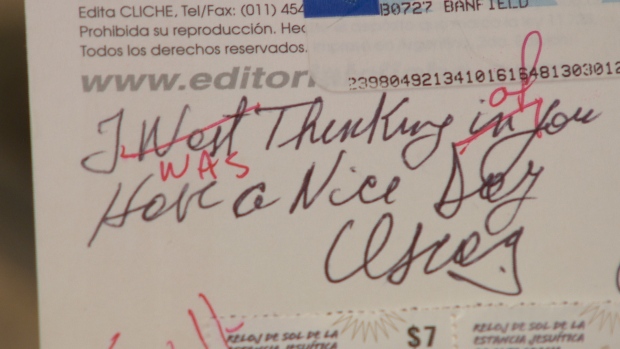 Edita CLICHE, Tel/Fax: (011) 454
B0727 BANFIELD
Prohibida su reproducción. Hec
Todos los derechos reservados.
www.editori
23980492134101616481303012
of
I West Thenking in you
WAS
Have a Nice Day
Oscar
RELOJ DE SOL DE LA
ESTANCIA JESUÍTICA
$7
RELOJ DE SOL DE LA
ESTANCIA JESUÍTICA